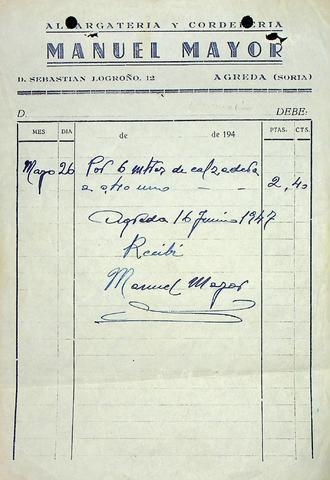 ALPARGATERIA Y CORDELERIA
MANUEL MAYOR
D. SEBASTIAN LOGROÑO, 12 AGREDA (SORIA)
D. DEBE:
MES DIA de de 194 PTAS. CTS.
Mayo 26 Por 6 mttos de calzadera
a 0,40 uno — — 2,40
Agreda 16 Junio 1947
Recibi
Manuel Mayor